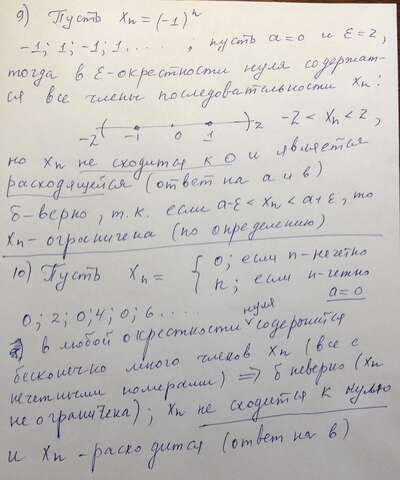 9) Пусть Xn = (-1)^n
-1; 1; -1; 1 . . . . , пусть a=0 и ε=2,
тогда в ε-окрестности нуля содержат-
ся все члены последовательности Xn:
-2 -1 0 1 2 -2 < Xn < 2,
но Xn не сходится к 0 и является
расходящейся (ответ на а и в)
б-верно, т.к. если a-ε < Xn < a+ε, то
Xn - ограничена (по определению)
10) Пусть Xn = { 0; если n-нечетно
n; если n-четно
0; 2; 0; 4; 0; 6 . . . . a=0
в любой окрестности нуля содержится
бесконечно много членов Xn (все с
нечетными номерами) ⇒ б неверно (Xn
не ограничена); Xn не сходится к нулю
и Xn - расходится (ответ на в)